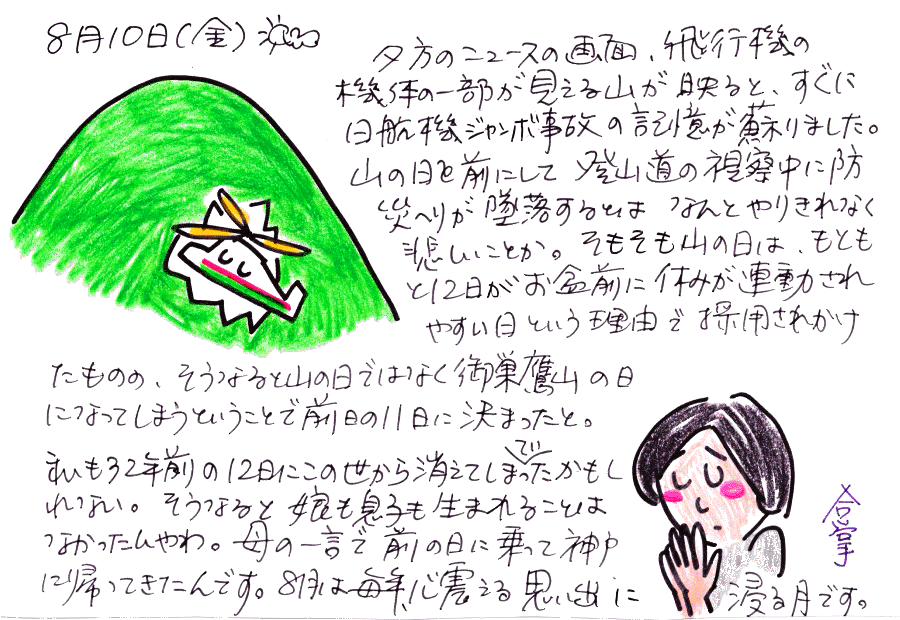 8月10日(金)
夕方のニュースの画面、飛行機の
機体の一部が見える山が映ると、すぐに
日航機ジャンボ事故の記憶が蘇りました。
山の日を前にして登山道の視察中に防
災ヘリが墜落するとは なんとやりきれなく
悲しいことか。そもそも山の日は、もとも
と12日がお盆前に休みが連動され
やすい日という理由で採用されかけ
たものの、そうなると山の日ではなく御巣鷹山の日
になってしまうということで前日の11日に決まったと。
私も32年前の12日にこの世から消えてしまってい たかもし
れない。そうなると娘も息子も生まれることは
なかったんやわ。母の一言で前の日に乗って神戸
に帰ってきたんです。8月は毎年、心震える思い出に
浸る月です。
合掌